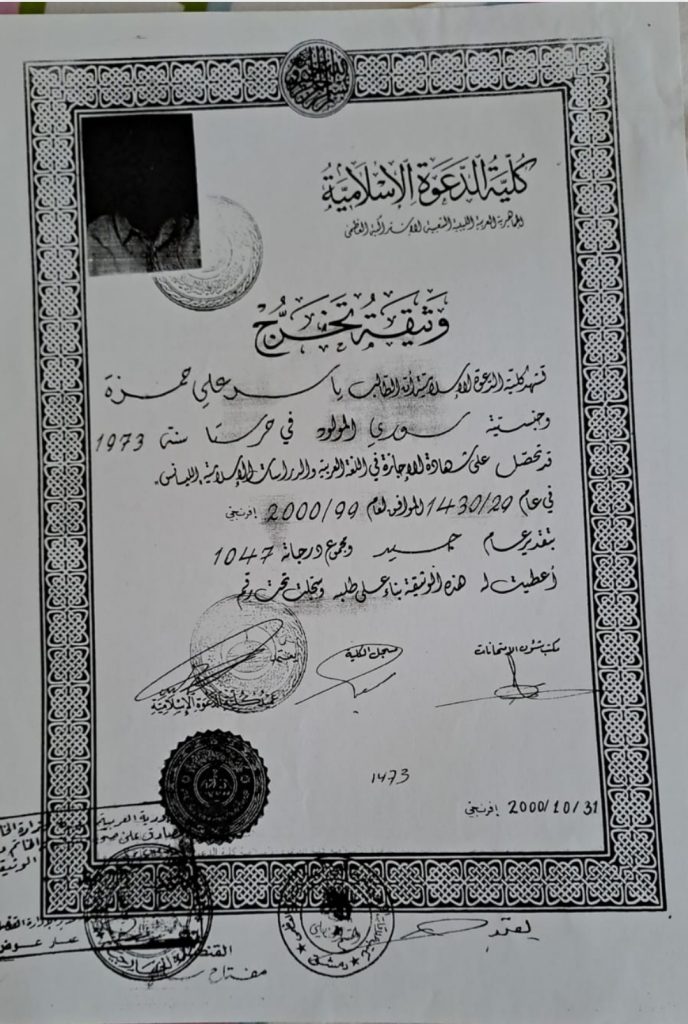 كلية الدعوة الإسلامية
الجماهيرية العربية الليبية الشعبية الاشتراكية العظمى
وثيقة تخرج
تشهد كلية الدعوة الإسلامية أن الطالب ياسر علي حمزة
وجنسيته سوري المولود في حرستا سنة 1973
قد تحصل على شهادة الإجازة في اللغة العربية والدراسات الإسلامية الليسانس.
في عام 1430/29 الموافق لعام 2000/99 إفرنجي
بتقدير عام جيد ومجموع درجاته 1047
أعطيت له هذه الوثيقة بناء على طلبه وسجلت تحت رقم
مكتب شئون الامتحانات
مسجل الكلية
عميد كلية الدعوة الإسلامية
1473
2000/10/31 إفرنجي
العربية
دمشق
يعتمد
مفتاح